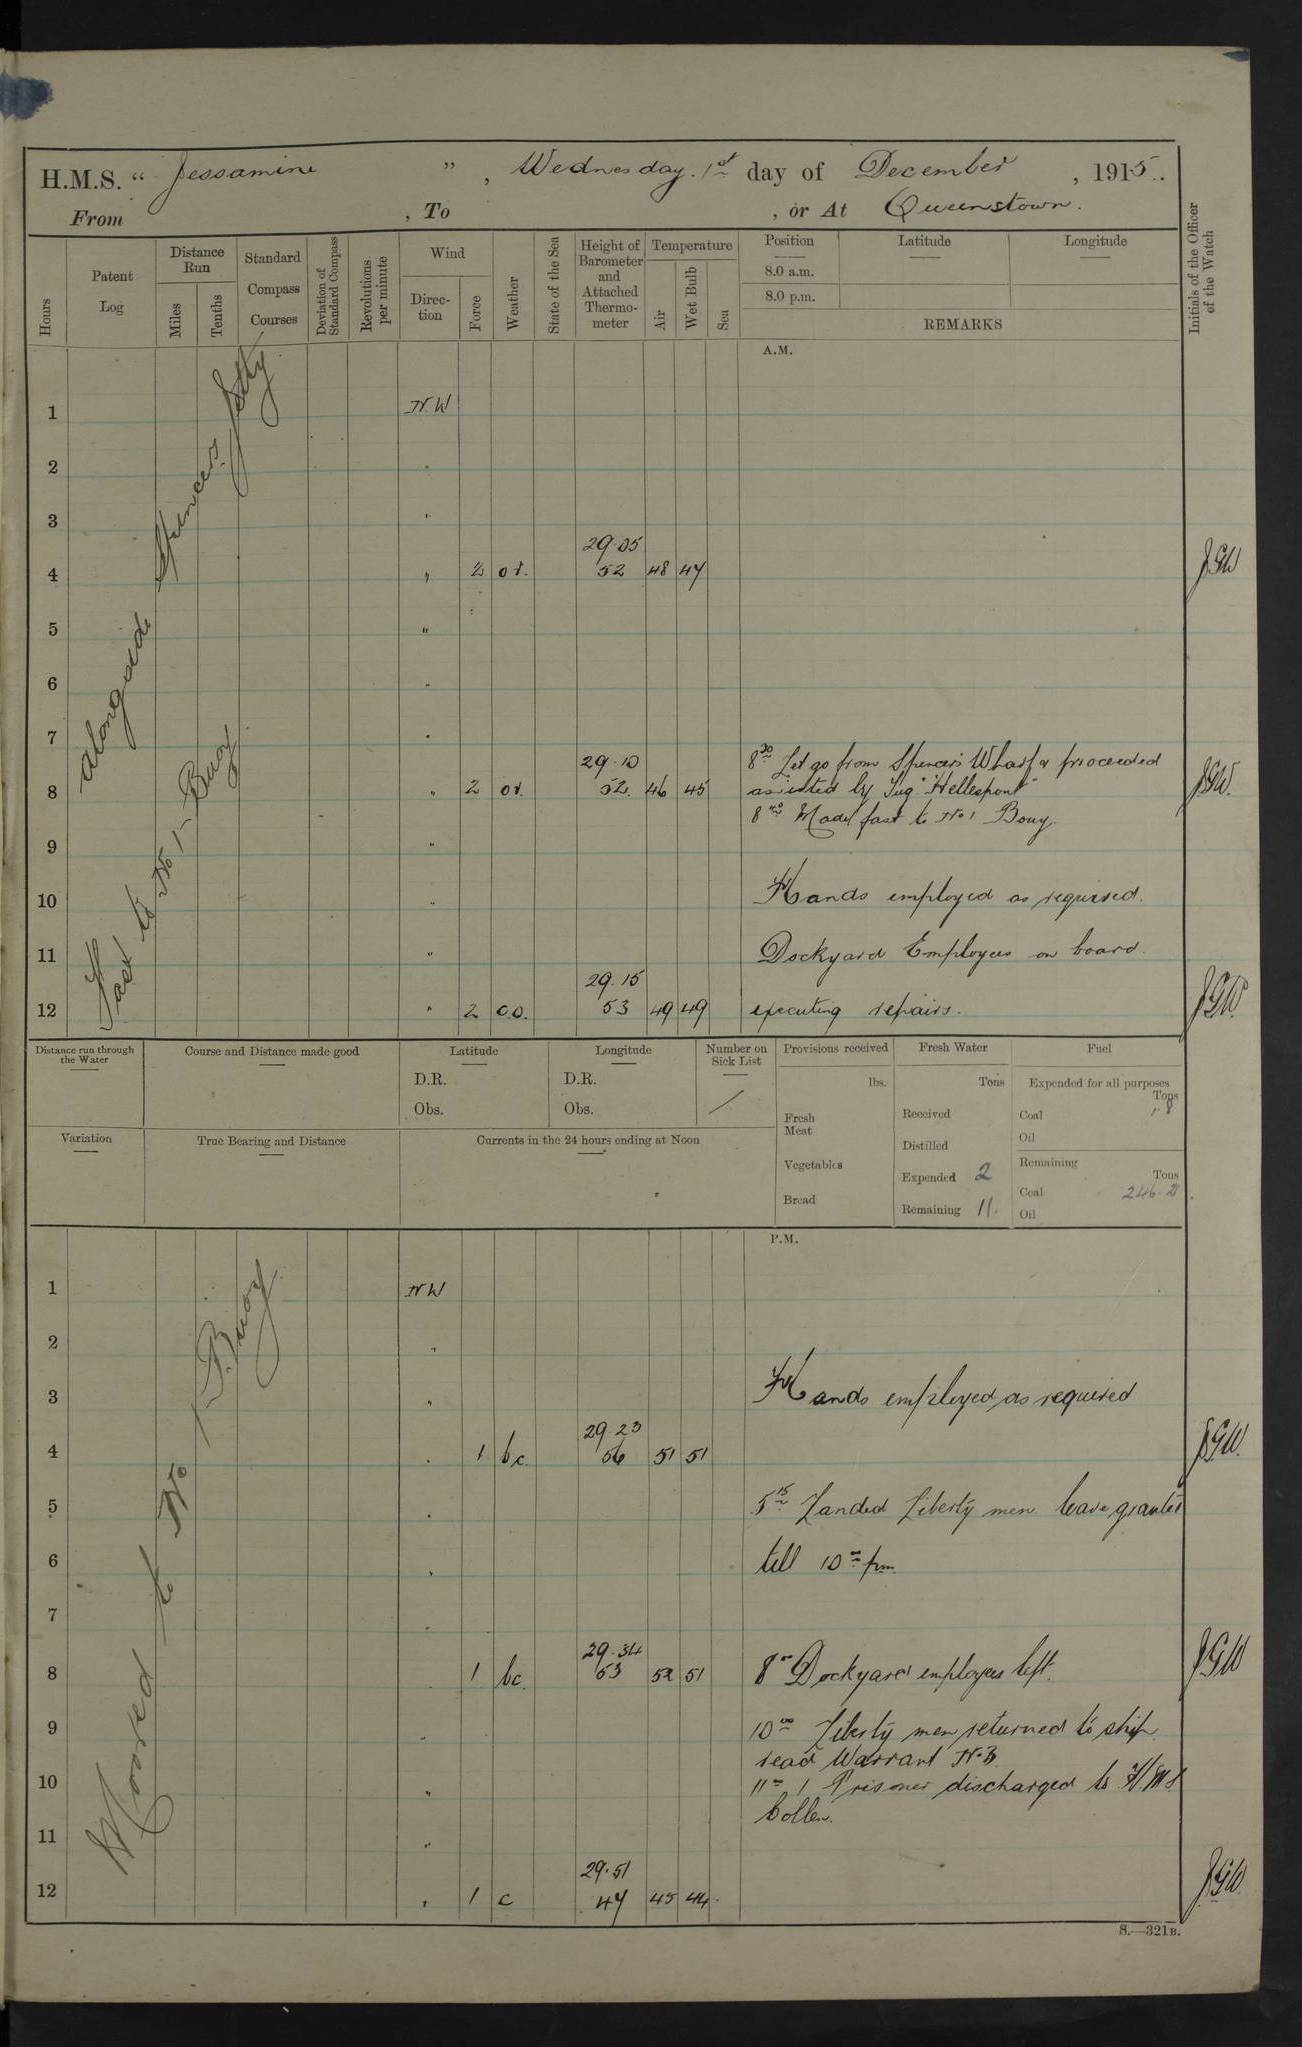 H.M.S. "Jessamine", Wednesday. 1st day of December, 1915.
From , To , or At Queenstown.
Hours
Patent Log
Distance Run
Miles
Tenths
Standard Compass Courses
Deviation of Standard Compass
Revolutions per minute
Wind
Direction
Force
Weather
State of the Sea
Height of Barometer and Attached Thermometer
Temperature
Air
Wet Bulb
Sea
Position
Latitude
Longitude
8.0 a.m.
8.0 p.m.
REMARKS
Initials of the Officer of the Watch
A.M.
alongside Spencers Jetty
Fast to No 1 Buoy
1 N.W
2 "
3 "
29.05
4 " 2 or. 52 48 47 JGW
5 "
6 "
7 "
29.10 8 30 Let go from Spencers Wharf & proceeded
8 " 2 or. 52. 46 45 assisted by Tug "Hellespont" JGW.
8 Made fast to No 1 Bouy.
9 "
10 " Hands employed as required.
11 " Dockyard Employees on board
29.15
12 " 2 co. 53 49 49 executing repairs. JGW.
Distance run through the Water
Course and Distance made good
Latitude
D.R.
Obs.
Longitude
D.R.
Obs.
Number on Sick List
/
Provisions received
lbs.
Fresh Meat
Vegetables
Bread
Fresh Water
Tons
Received
Distilled
Expended 2
Remaining 11.
Fuel
Expended for all purposes
Tons
Coal 1.8
Oil
Remaining
Tons
Coal
Oil
Variation
True Bearing and Distance
Currents in the 24 hours ending at Noon
P.M.
Moored to No 1 Buoy
1 NW
2 "
3 " Hands employed as required
29.23
4 " 1 bc. 56 51 51 JGW.
5 " 5 15 Landed Liberty men leave granted
6 " till 10 pm.
7 "
29.34
8 1 bc. 53 52 51 8 Dockyard employees left. JGW
9 " 10 00 Liberty men returned to ship.
read Warrant No 3.
10 " 11 1 Prisoner discharged to HMS
11 "
29.51
12 " 1 c 47 45 44 JGW.
S.—321B.